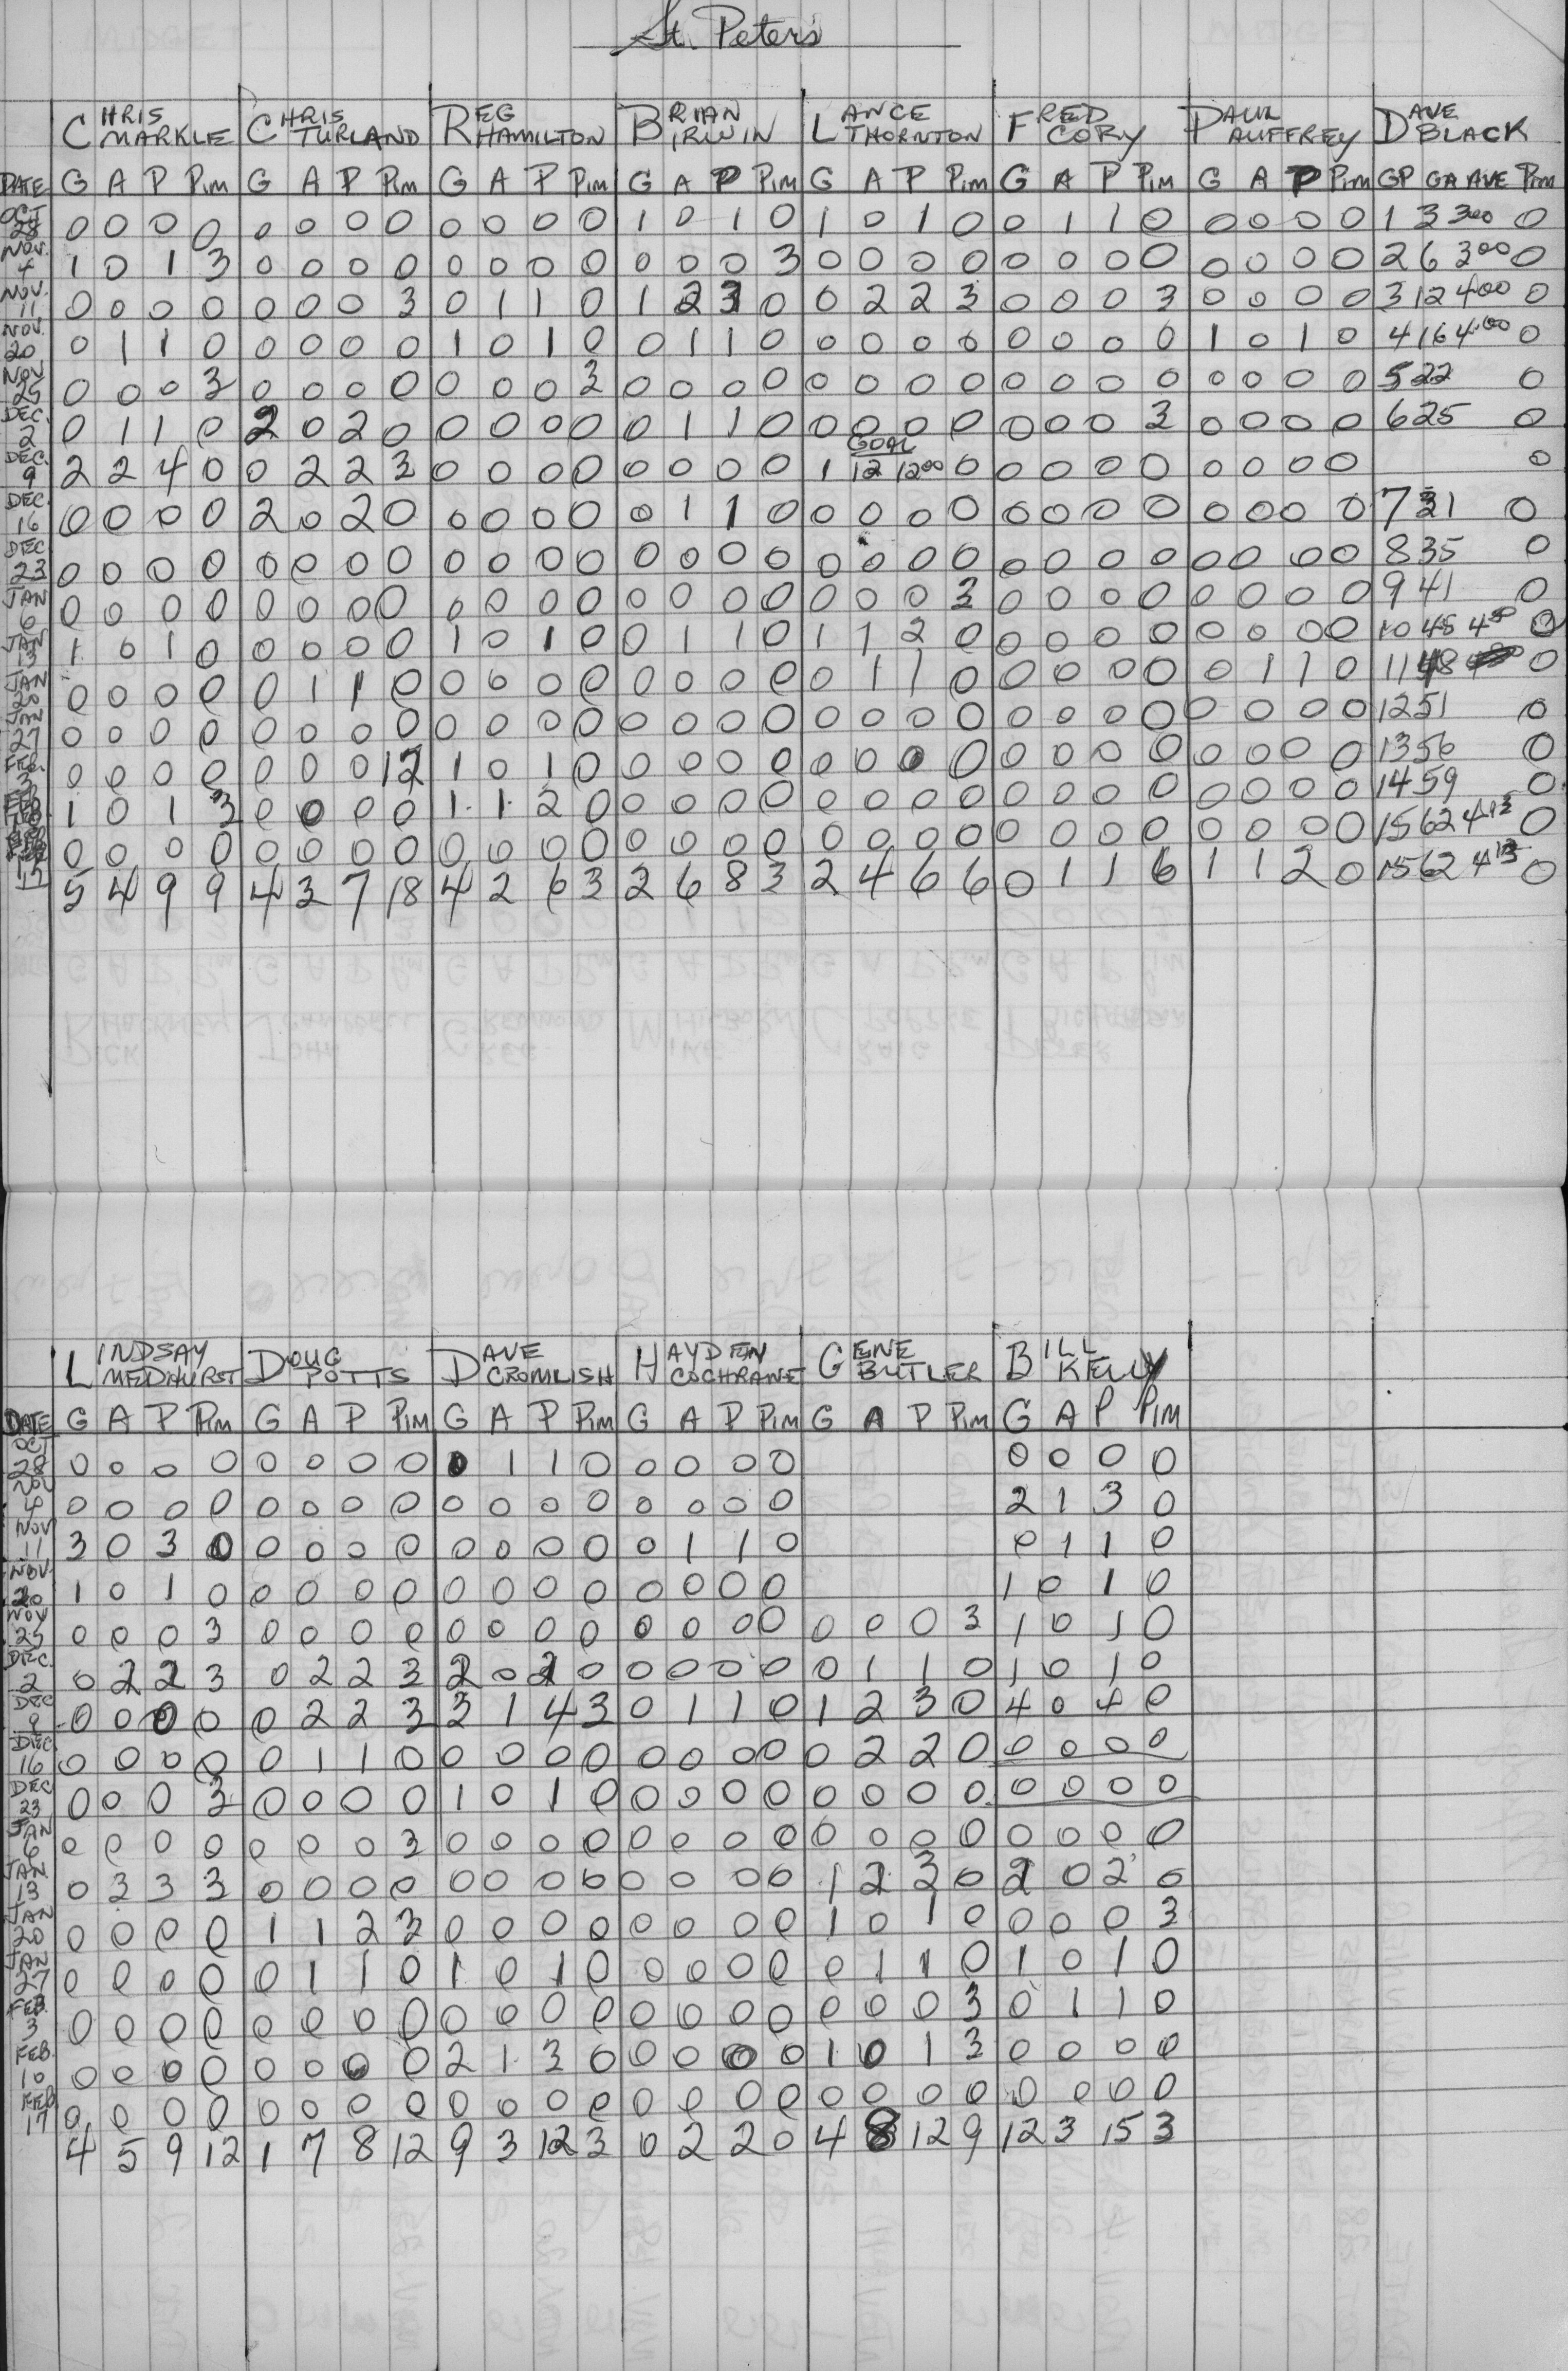 St. Peter's
CHRIS MARKLE CHRIS TURLAND REG HAMILTON BRIAN IRWIN LANCE THORNTON FRED CORY PAUL AUFFREY DAVE BLACK
DATE G A P PIM G A P PIM G A P PIM G A P PIM G A P PIM G A P PIM G A P PIM GP GA AVE PIM
OCT 28 0 0 0 0 0 0 0 0 0 0 0 0 1 0 1 0 1 0 1 0 0 1 1 0 0 0 0 0 1 3 3.00 0
NOV. 4 1 0 1 3 0 0 0 0 0 0 0 0 0 0 0 3 0 0 0 0 0 0 0 0 0 0 0 0 2 6 3.00 0
NOV. 11 0 0 0 0 0 0 0 3 0 1 1 0 1 2 3 0 0 2 2 3 0 0 0 3 0 0 0 0 3 12 4.00 0
NOV. 20 0 1 1 0 0 0 0 0 1 0 1 0 0 1 1 0 0 0 0 0 0 0 0 0 1 0 1 0 4 16 4.00 0
NOV 25 0 0 0 3 0 0 0 0 0 0 0 3 0 0 0 0 0 0 0 0 0 0 0 0 0 0 0 0 5 22 0
DEC. 2 0 1 1 0 2 0 2 0 0 0 0 0 0 1 1 0 0 0 0 0 0 0 0 3 0 0 0 0 6 25 0
DEC. 9 2 2 4 0 0 2 2 3 0 0 0 0 0 0 0 0 GOAL 1 12 12.00 0 0 0 0 0 0 0 0 0 0
DEC. 16 0 0 0 0 2 0 2 0 0 0 0 0 0 1 1 0 0 0 0 0 0 0 0 0 0 0 0 0 7 31 0
DEC 23 0 0 0 0 0 0 0 0 0 0 0 0 0 0 0 0 0 0 0 0 0 0 0 0 0 0 0 0 8 35 0
JAN 6 0 0 0 0 0 0 0 0 0 0 0 0 0 0 0 0 0 0 0 3 0 0 0 0 0 0 0 0 9 41 0
JAN 13 1 0 1 0 0 0 0 0 1 0 1 0 0 1 1 0 1 1 2 0 0 0 0 0 0 0 0 0 10 45 4.50 0
JAN 20 0 0 0 0 0 1 1 0 0 0 0 0 0 0 0 0 0 1 1 0 0 0 0 0 0 1 1 0 11 48 0
JAN 27 0 0 0 0 0 0 0 0 0 0 0 0 0 0 0 0 0 0 0 0 0 0 0 0 0 0 0 0 12 51 0
FEB. 3 0 0 0 0 0 0 0 12 1 0 1 0 0 0 0 0 0 0 0 0 0 0 0 0 0 0 0 0 13 56 0
FEB 10 1 0 1 3 0 0 0 0 1 1 2 0 0 0 0 0 0 0 0 0 0 0 0 0 0 0 0 0 14 59 0
17 0 0 0 0 0 0 0 0 0 0 0 0 0 0 0 0 0 0 0 0 0 0 0 0 0 0 0 0 15 62 4.13 0
5 4 9 9 4 3 7 18 4 2 6 3 2 6 8 3 2 4 6 6 0 1 1 6 1 1 2 0 15 62 4.13 0
LINDSAY MEDHURST DOUG POTTS DAVE CROMLISH HAYDEN COCHRANE GENE BUTLER BILL KELLY
DATE G A P PIM G A P PIM G A P PIM G A P PIM G A P PIM G A P PIM
OCT 28 0 0 0 0 0 0 0 0 0 1 1 0 0 0 0 0 0 0 0 0
NOV 4 0 0 0 0 0 0 0 0 0 0 0 0 0 0 0 0 2 1 3 0
NOV 11 3 0 3 0 0 0 0 0 0 0 0 0 0 1 1 0 0 1 1 0
NOV. 20 1 0 1 0 0 0 0 0 0 0 0 0 0 0 0 0 1 0 1 0
NOV 25 0 0 0 3 0 0 0 0 0 0 0 0 0 0 0 0 0 0 0 3 1 0 1 0
DEC. 2 0 2 2 3 0 2 2 3 2 0 2 0 0 0 0 0 0 1 1 0 1 0 1 0
DEC 9 0 0 0 0 0 2 2 3 3 1 4 3 0 1 1 0 1 2 3 0 4 0 4 0
DEC. 16 0 0 0 0 0 1 1 0 0 0 0 0 0 0 0 0 0 2 2 0 0 0 0 0
DEC 23 0 0 0 3 0 0 0 0 1 0 1 0 0 0 0 0 0 0 0 0 0 0 0 0
JAN 6 0 0 0 0 0 0 0 3 0 0 0 0 0 0 0 0 0 0 0 0 0 0 0 0
JAN 13 0 3 3 3 0 0 0 0 0 0 0 0 0 0 0 0 1 2 3 0 2 0 2 0
JAN 20 0 0 0 0 1 1 2 3 0 0 0 0 0 0 0 0 1 0 1 0 0 0 0 3
JAN 27 0 0 0 0 0 1 1 0 1 0 1 0 0 0 0 0 0 1 1 0 1 0 1 0
FEB. 3 0 0 0 0 0 0 0 0 0 0 0 0 0 0 0 0 0 0 0 3 0 1 1 0
FEB. 10 0 0 0 0 0 0 0 0 2 1 3 0 0 0 0 0 1 0 1 3 0 0 0 0
FEB 17 0 0 0 0 0 0 0 0 0 0 0 0 0 0 0 0 0 0 0 0 0 0 0 0
4 5 9 12 1 7 8 12 9 3 12 3 0 2 2 0 4 8 12 9 12 3 15 3